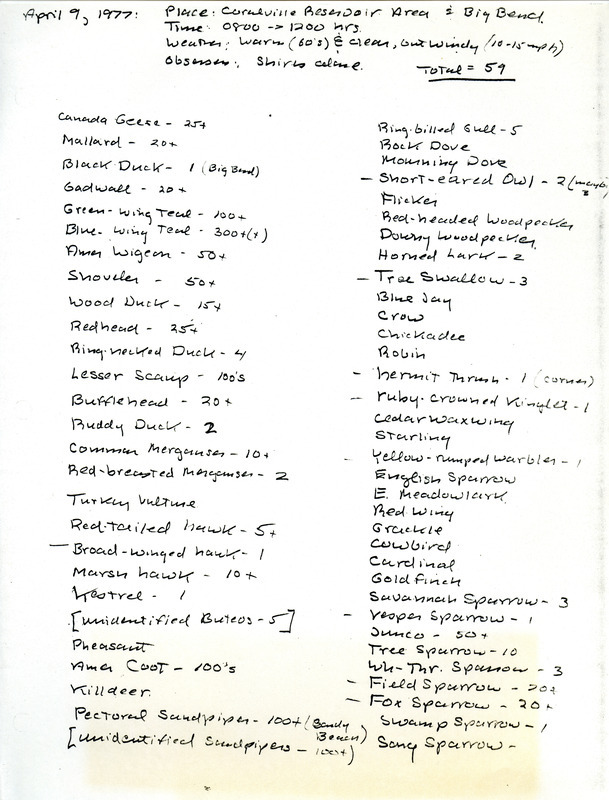 April 9, 1977: Place: Coralville Reservoir Area & Big Bend.
Time: 0800 -> 1200 hrs.
Weather: Warm (60's) & clear, but windy (10-15 mph)
Observer: Shires alone.
Total = 59
Canada Geese - 25+
Mallard - 20+
Black Duck - 1 (Big Bend)
Gadwall - 20+
Green-wing Teal - 100+
Blue-wing Teal - 300+(+)
Amer Wigeon - 50+
Shoveler - 50+
Wood Duck - 15+
Redhead - 25+
Ring-necked Duck - 4
Lesser Scaup - 100's
Bufflehead - 20+
Ruddy Duck - 2
Common Merganser - 10+
Red-breasted Merganser - 2
Turkey Vulture
Red-tailed hawk - 5+
- Broad-winged hawk - 1
Marsh hawk - 10+
Kestrel - 1
[unidentified Buteos - 5]
Pheasant
Amer Coot - 100's
Killdeer
Pectoral Sandpiper - 100+ (Sandy Beach)
[unidentified Sandpipers - 100+)
Ring-billed Gull - 5
Rock Dove
Mourning Dove
- Short-eared Owl - 2 (maybe 3
Flicker
Red-headed Woodpecker
Downy Woodpecker
Horned Lark - 2
- Tree Swallow - 3
Blue Jay
Crow
Chickadee
Robin
- hermit Thrush - 1 (corner)
- ruby-crowned Kinglet - 1
Cedar Waxwing
Starling
- Yellow-rumped warbler - 1
English Sparrow
E. Meadowlark
Red Wing
Grackle
Cowbird
Cardinal
Goldfinch
Savannah Sparrow - 3
- Vesper Sparrow - 1
Junco - 50+
Tree Sparrow - 10
Wh-Thr. Sparrow - 3
- Field Sparrow - 20+
- Fox Sparrow - 20+
Swamp Sparrow - 1
Song Sparrow -